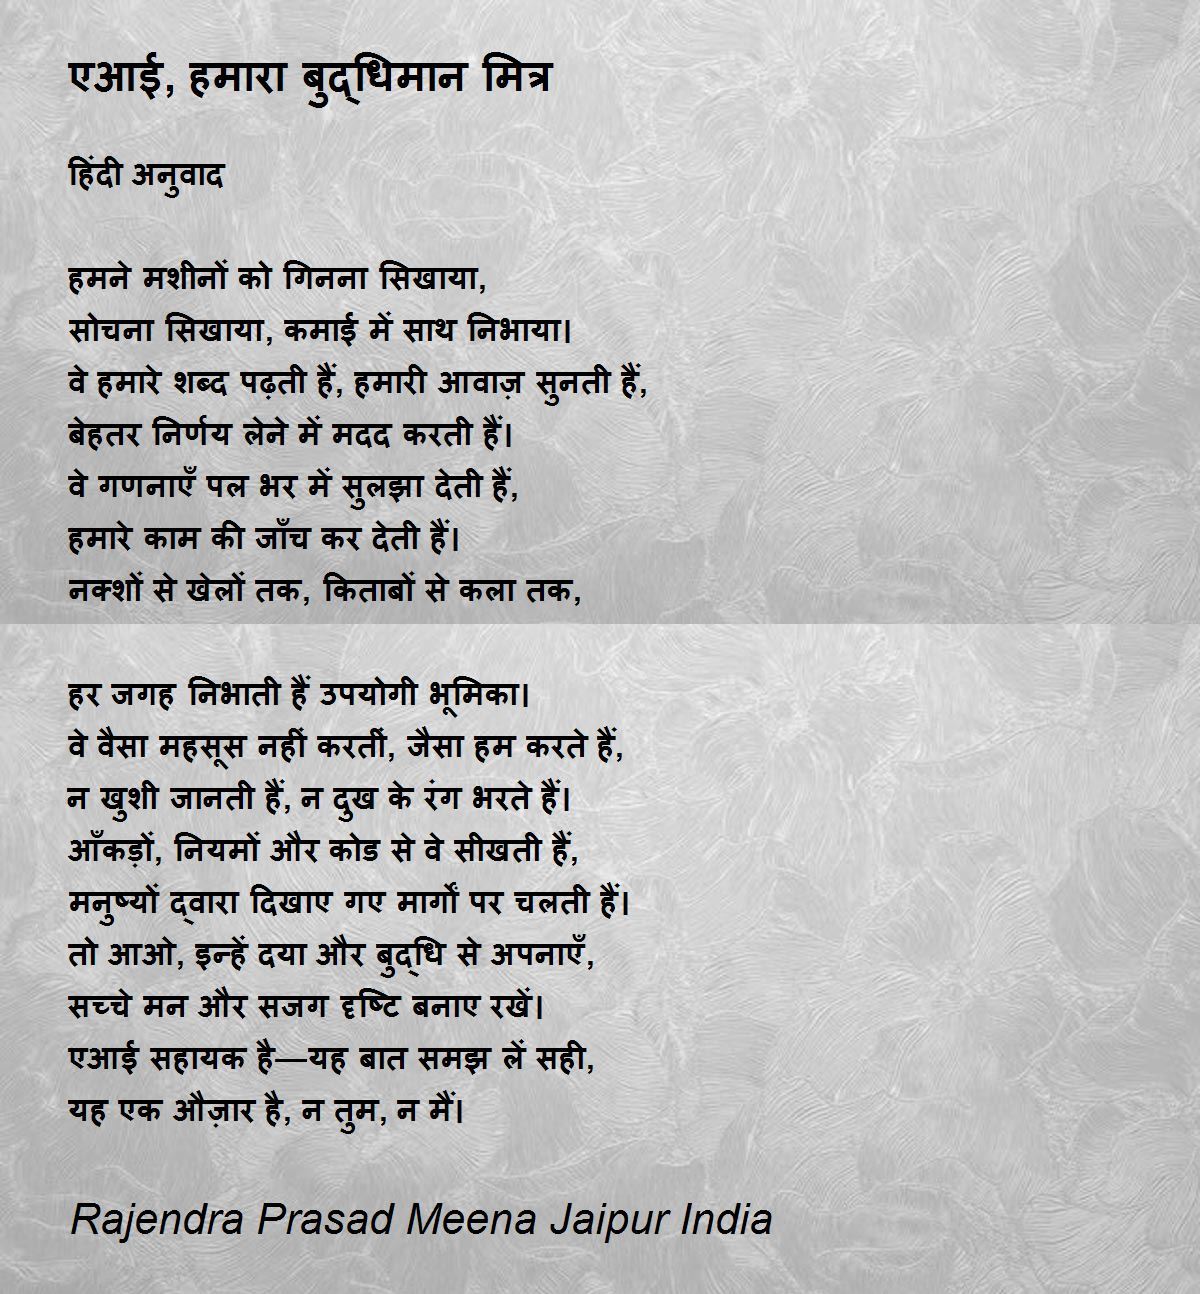 एआई, हमारा बुद्धिमान मित्र
हिंदी अनुवाद
हमने मशीनों को गिनना सिखाया,
सोचना सिखाया, कमाई में साथ निभाया।
वे हमारे शब्द पढ़ती हैं, हमारी आवाज़ सुनती हैं,
बेहतर निर्णय लेने में मदद करती हैं।
वे गणनाएँ पल भर में सुलझा देती हैं,
हमारे काम की जाँच कर देती हैं।
नक्शों से खेलों तक, किताबों से कला तक,
हर जगह निभाती हैं उपयोगी भूमिका।
वे वैसा महसूस नहीं करतीं, जैसा हम करते हैं,
न खुशी जानती हैं, न दुख के रंग भरते हैं।
आँकड़ों, नियमों और कोड से वे सीखती हैं,
मनुष्यों द्वारा दिखाए गए मार्गों पर चलती हैं।
तो आओ, इन्हें दया और बुद्धि से अपनाएँ,
सच्चे मन और सजग दृष्टि बनाए रखें।
एआई सहायक है—यह बात समझ लें सही,
यह एक औज़ार है, न तुम, न मैं।
Rajendra Prasad Meena Jaipur India